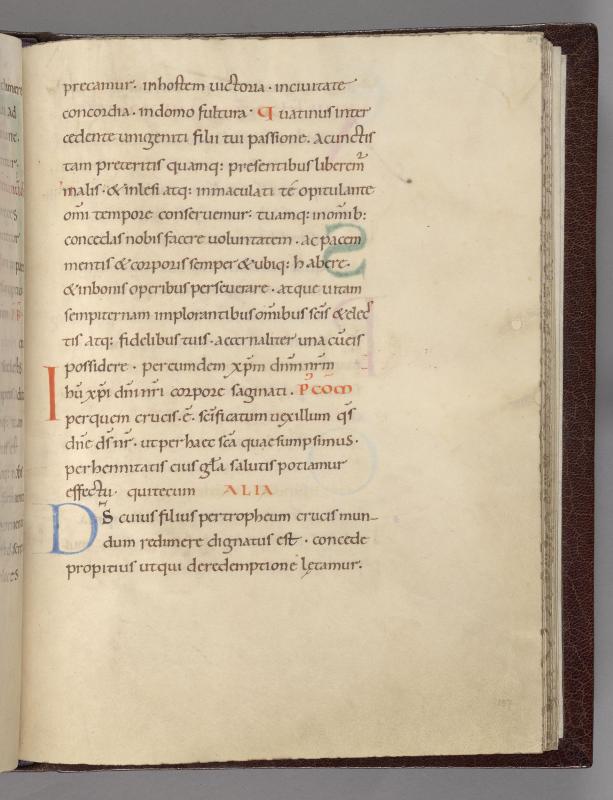 precamur. in hostem uictoria. in ciuitate
concordia. in domo fultura. Quatinus inter
cedente unigeniti filii tui passione. a cunctis
tam preteritis quamq: presentibus liberem̅
malis. & inlesi atq: inmaculati te opitulante
om̅i tempore conseruemur. tuamq: in om̅ib:
concedas nobis facere uoluntatem. ac pacem
mentis & corporis semper & ubiq: habere.
& in bonis operibus perseuerare. atque uitam
sempiternam implorantibus om̅ibus sc̅is & elec
tis atq: fidelibus tuis. aeternaliter una cum eis
possidere. per eundem xp̅m dn̅m nr̅m
Ihu̅ xp̅i dn̅i nr̅i corpore saginati. P̅ COM̅
per quem crucis. e̅. sc̅ificatum uexillum qs̅
dn̅e ds̅ nr̅. ut per haec sc̅a quae sumpsimus.
perhennitatis eius gl̅a salutis potiamur
effectu. qui tecum ALIA
Ds̅ cuius filius per tropheum crucis mun-
dum redimere dignatus est. concede
propitius ut qui de redemptione lętamur.